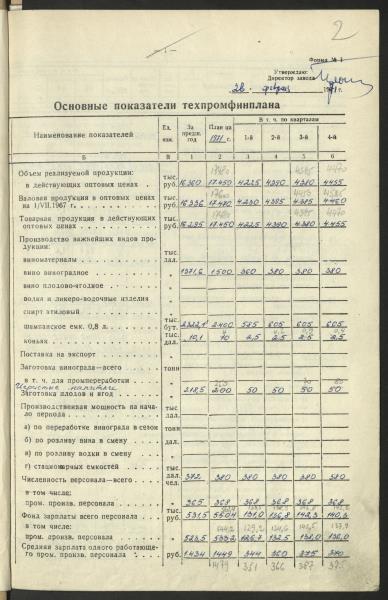 2
Форма № 1
Утверждаю:
Директор завода
28 февраля 1971 г.
Основные показатели техпромфинплана
Наименование показателей
Ед. изм.
За предш. год
План на 1971 г.
В т. ч. по кварталам
1-й 2-й 3-й 4-й
Б В 1 2 3 4 5 6
Объем реализуемой продукции:
в действующих оптовых ценах . тыс. руб. 16360 17.450 4225 4390 4380 4455
Валовая продукция в оптовых ценах
на 1/VII.1967 г. тыс. руб. 16336 17.480 4230 4385 4385 4460
Товарная продукция в действующих
оптовых ценах тыс. руб. 16295 17.450 4225 4390 4380 4455
Производство важнейших видов продукции:
виноматериалы тыс. дал.
вино виноградное " 1371,6 1500 360 380 380 380
вино плодово-ягодное "
водка и ликеро-водочные изделия "
спирт этиловый "
шампанское емк. 0,8 л. тыс. бут. 2322,1 2400 585 605 605 605
коньяк тыс. дал. 10,1 10 2,5 2,5 2,5 2,5
Поставка на экспорт
Заготовка винограда—всего тонн
в т. ч. для промпереработки "
Игристые напитки
218,5 200 50 50 50 50
Заготовка плодов и ягод "
Производственная мощность на начало периода тыс. дал.
а) по переработке винограда в сезон тонн
б) по розливу вина в смену дал.
в) по розливу водки в смену "
г) стационарных емкостей тыс. дал.
Численность персонала—всего чел. 372 380 380 380 380 380
в том числе:
пром. произв. персонала " 365 368 368 368 368 368
Фонд зарплаты всего персонала тыс. руб. 531,5 550,4 131,0 136,8 142,3 140,3
в том числе:
пром. произв. персонала " 523,5 533,2 126,7 132,5 138,0 136,0
Средняя зарплата одного работающего
пром. произв. персонала руб. 1434 1449 344 360 375 370
1479 351 366 387 375